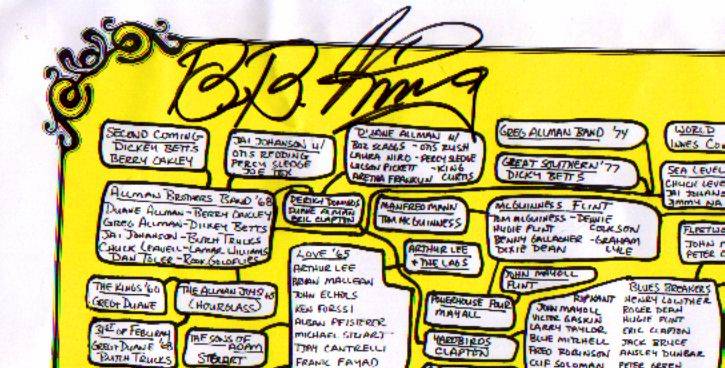 B.B. King
SECOND COMING
DICKEY BETTS
BERRY OAKLEY
JAI JOHANSON W/
OTIS REDDING
PERCY SLEDGE
JOE TEX
DUANE ALLMAN W/
BOZ SCAGGS - OTIS RUSH
LAURA NIRO - PERCY SLEDGE
WILSON PICKETT - KING
ARETHA FRANKLIN CURTIS
GREG ALLMAN BAND '74
GREAT SOUTHERN '77
DICKY BETTS
WORLD
SEA LEVEL
CHUCK LEVE
JAI JOHANS
JIMMY NA
ALLMAN BROTHERS BAND '68
DUANE ALLMAN - BERRY OAKLEY
GREGG ALLMAN - DICKEY BETTS
JAI JOHANSON - BUTCH TRUCKS
CHUCK LEAVELL - LAMAR WILLIAMS
DAN TOLER - ROOK GOLDFLIES
DEREK + DOMINOS
DUANE ALLMAN
ERIC CLAPTON
MANFRED MANN
TOM MCGUINNESS
MCGUINNESS FLINT
TOM MCGUINNESS - DENNIE
HUGHIE FLINT COULSON
BENNY GALLAGHER - GRAHAM
DIXIE DEAN LYLE
FLEETWO
JOHN M
PETER G
LOVE '65
ARTHUR LEE
BRYAN MACLEAN
JOHN ECHOLS
KEN FORSSI
ALBAN PFISTERER
MICHAEL STUART
TJAY CANTRELLI
FRANK FAYAD
ARTHUR LEE
+ THE LAGS
JOHN MAYOLL
FLINT
THE KINGS '60
GREGG DUANE
THE ALLMAN JOYS '65
(HOURGLASS)
31ST OF FEBURAY
GREGG DUANE '68
BUTCH TRUCKS
THE SONS OF
ADAM
STUART
POWERHOUSE FOUR
MAYALL
YARDBIRDS
CLAPTON
BLUES BREAKERS
HENRY LOWTHER
JOHN MAYOLL ROGER DEAN
VICTOR GASKIN HUGHIE FLINT
LARRY TAYLOR ERIC CLAPTON
BLUE MITCHELL JACK BRUCE
FRED ROBINSON AYNSLEY DUNBAR
CLIF SOLOMAN PETER GREEN